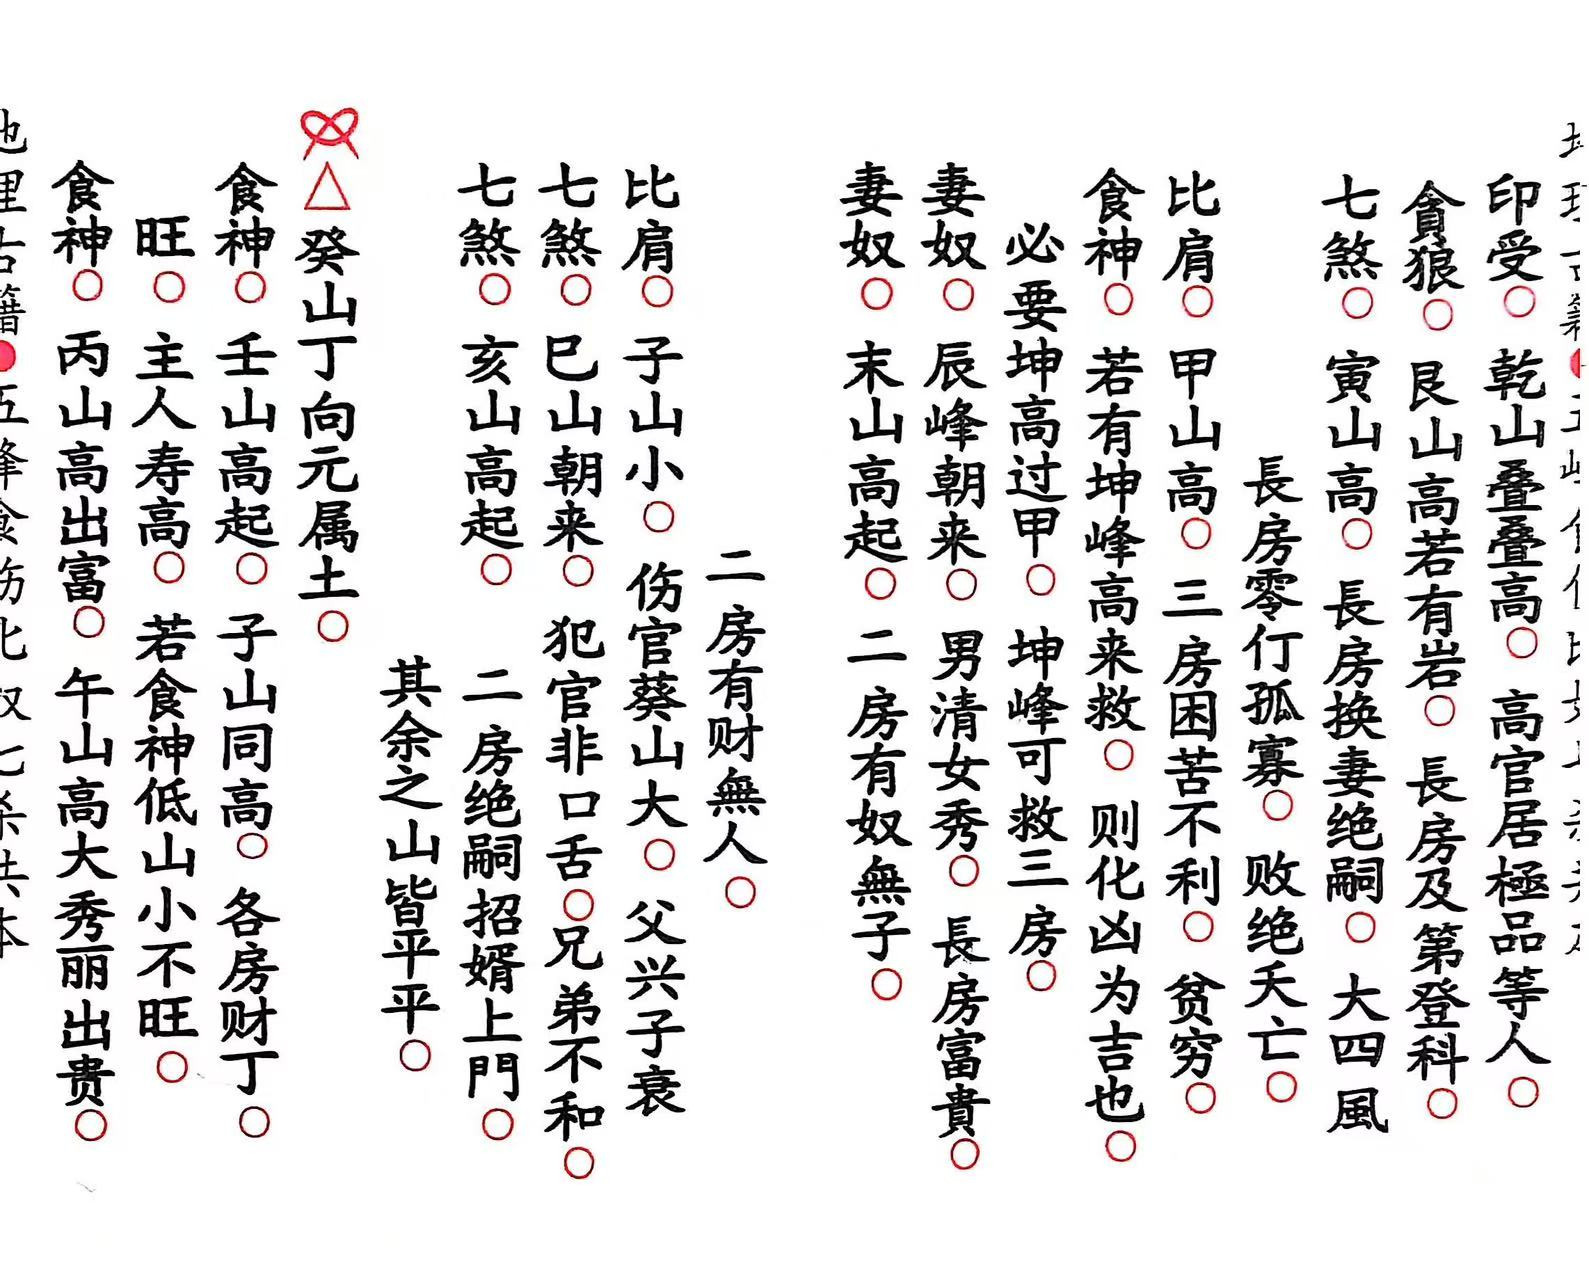 印受○乾山叠叠高○高官居極品等人○
貪狼○艮山高若有岩○長房及第登科○
七煞○寅山高○長房换妻绝嗣○大四風
長房零仃孤寡○败绝夭亡○
比肩○甲山高○三房困苦不利○贫穷○
食神○若有坤峰高来救○则化凶为吉也○
必要坤高过甲○坤峰可救三房○
妻奴○辰峰朝来○男清女秀○長房富貴○
妻奴○末山高起○二房有奴無子○
二房有财無人○
比肩○子山小○伤官葵山大○父兴子衰
七煞○巳山朝来○犯官非口舌○兄弟不和○
七煞○亥山高起○二房绝嗣招婿上門○
其余之山皆平平○
△癸山丁向元属土○
食神○壬山高起○子山同高○各房财丁○
旺○主人寿高○若食神低山小不旺○
食神○丙山高出富○午山高大秀丽出贵○